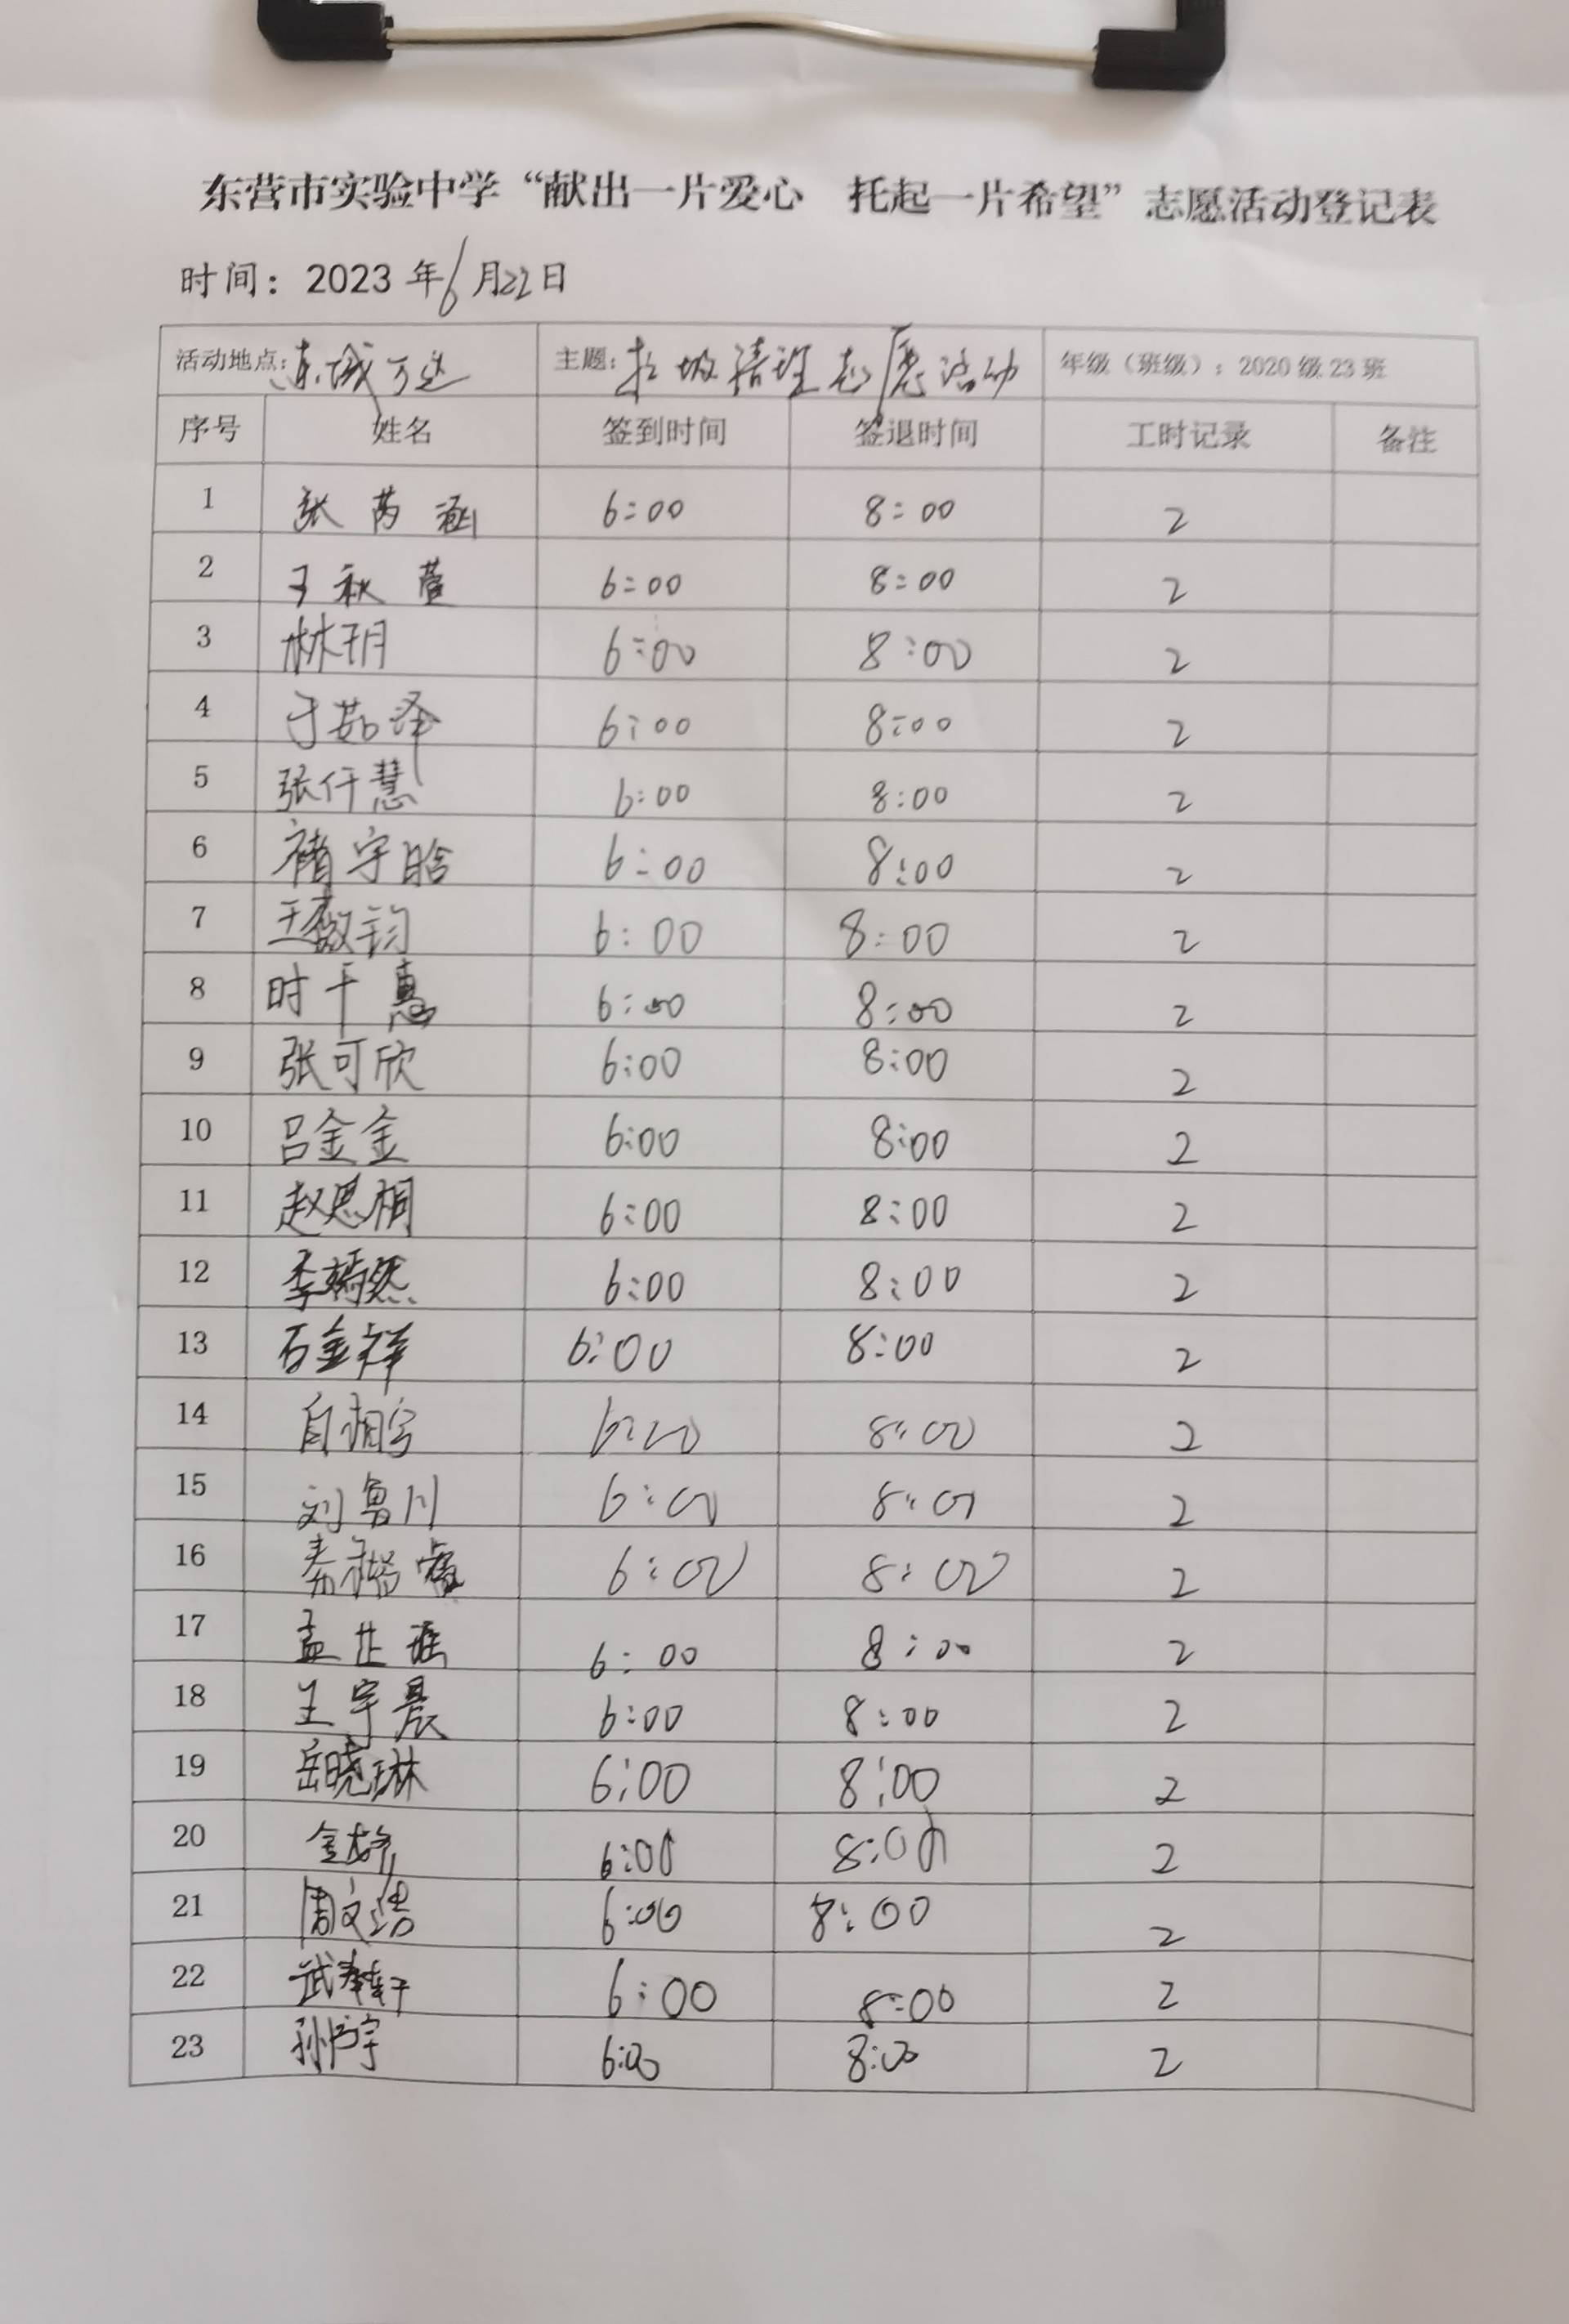 东营市实验中学“献出一片爱心 托起一片希望”志愿活动登记表
时间：2023年6月22日
活动地点：东城万达 主题：垃圾清理志愿活动 年级（班级）：2020级23班
序号 姓名 签到时间 签退时间 工时记录 备注
1 张芮涵 6:00 8:00 2
2 王秋萱 6:00 8:00 2
3 林玥 6:00 8:00 2
4 于茹泽 6:00 8:00 2
5 张仟慧 6:00 8:00 2
6 褚宇晗 6:00 8:00 2
7 王薇钧 6:00 8:00 2
8 时千惠 6:00 8:00 2
9 张可欣 6:00 8:00 2
10 吕金金 6:00 8:00 2
11 赵思桐 6:00 8:00 2
12 李嫣然 6:00 8:00 2
13 石金祥 6:00 8:00 2
14 6:00 8:00 2
15 刘鲁川 6:00 8:00 2
16 秦 6:00 8:00 2
17 孟芷 6:00 8:00 2
18 王宇晨 6:00 8:00 2
19 岳晓琳 6:00 8:00 2
20 金 6:00 8:00 2
21 周文 6:00 8:00 2
22 武 轩 6:00 8:00 2
23 孙 宇 6:00 8:00 2